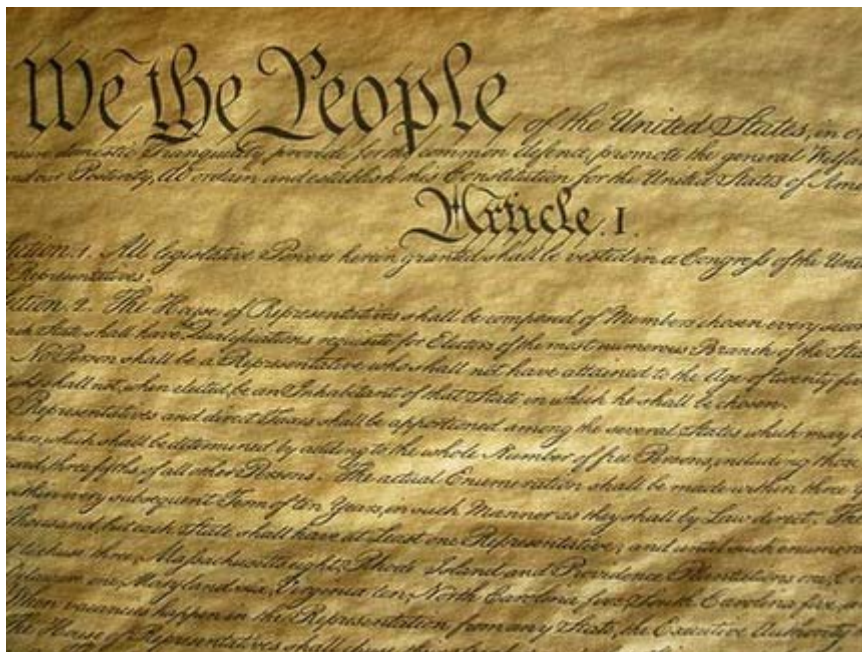 We the People of the United States, in
domestic Tranquility, provide for the common defence, promote the general Welfare
Posterity, do ordain and establish this Constitution for the United States of
Article. I.
Section. 1. All legislative Powers herein granted shall be vested in a Congress of the
Representatives.
Section. 2. The House of Representatives shall be composed of Members chosen every
State shall have Qualifications requisite for Electors of the most numerous Branch of the
No Person shall be a Representative who shall not have attained to the Age of twenty
shall not, when elected, be an Inhabitant of that State in which he shall be chosen.
Representatives and direct Taxes shall be apportioned among the several States which may
which shall be determined by adding to the whole Number of free Persons, including those
three fifths of all other Persons. The actual Enumeration shall be made within three
within every subsequent Term of ten Years, in such Manner as they shall by Law direct. The
Thousand, but each State shall have at Least one Representative; and until such
chuse three, Massachusetts eight, Rhode Island and Providence Plantations one,
one, Maryland six, Virginia ten, North Carolina five, South Carolina five,
When vacancies happen in the Representation from any State, the Executive Authority
The House of Representatives shall chuse